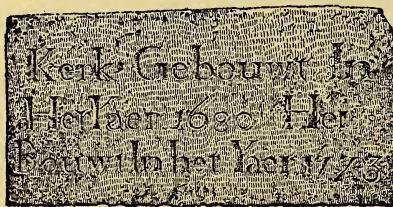 Kerk Gebouwt In
Het Iaer 1680 Her
Bouwt In het Yaer 1723